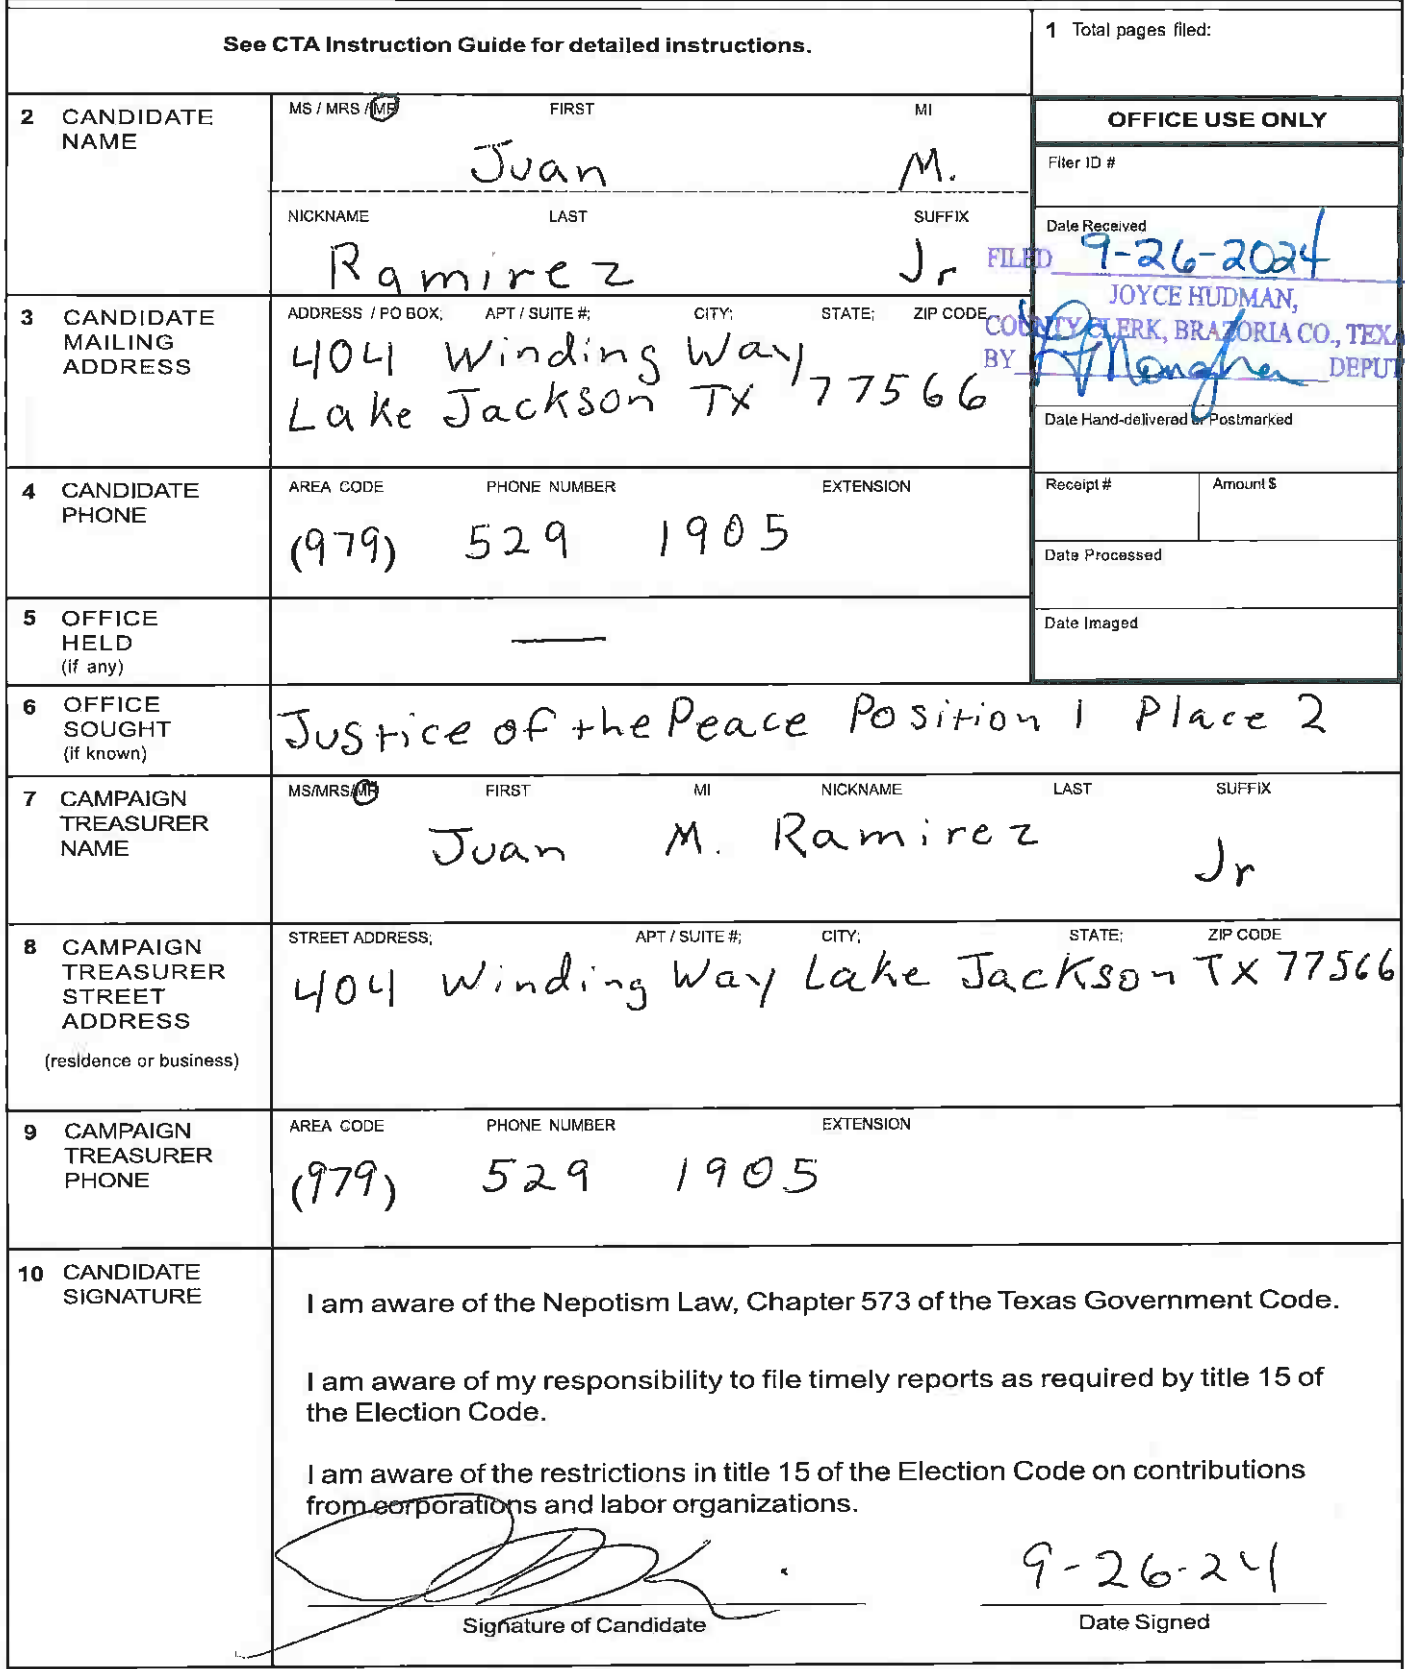 See CTA Instruction Guide for detailed instructions.
1 Total pages filed:
2 CANDIDATE NAME
MS / MRS / MR FIRST MI
Juan M.
NICKNAME LAST SUFFIX
Ramirez Jr
OFFICE USE ONLY
Filer ID #
Date Received
FILED 9-26-2024
JOYCE HUDMAN,
COUNTY CLERK, BRAZORIA CO., TEXA
BY DEPUT
Date Hand-delivered or Postmarked
Receipt # Amount $
Date Processed
Date Imaged
3 CANDIDATE MAILING ADDRESS
ADDRESS / PO BOX; APT / SUITE #; CITY; STATE; ZIP CODE
404 Winding Way
Lake Jackson TX 77566
4 CANDIDATE PHONE
AREA CODE PHONE NUMBER EXTENSION
(979) 529 1905
5 OFFICE HELD (if any)
—
6 OFFICE SOUGHT (if known)
Justice of the Peace Position 1 Place 2
7 CAMPAIGN TREASURER NAME
MS/MRS/MR FIRST MI NICKNAME LAST SUFFIX
Juan M. Ramirez Jr
8 CAMPAIGN TREASURER STREET ADDRESS (residence or business)
STREET ADDRESS; APT / SUITE #; CITY; STATE; ZIP CODE
404 Winding Way Lake Jackson TX 77566
9 CAMPAIGN TREASURER PHONE
AREA CODE PHONE NUMBER EXTENSION
(979) 529 1905
10 CANDIDATE SIGNATURE
I am aware of the Nepotism Law, Chapter 573 of the Texas Government Code.
I am aware of my responsibility to file timely reports as required by title 15 of
the Election Code.
I am aware of the restrictions in title 15 of the Election Code on contributions
from corporations and labor organizations.
9-26-24
Signature of Candidate Date Signed